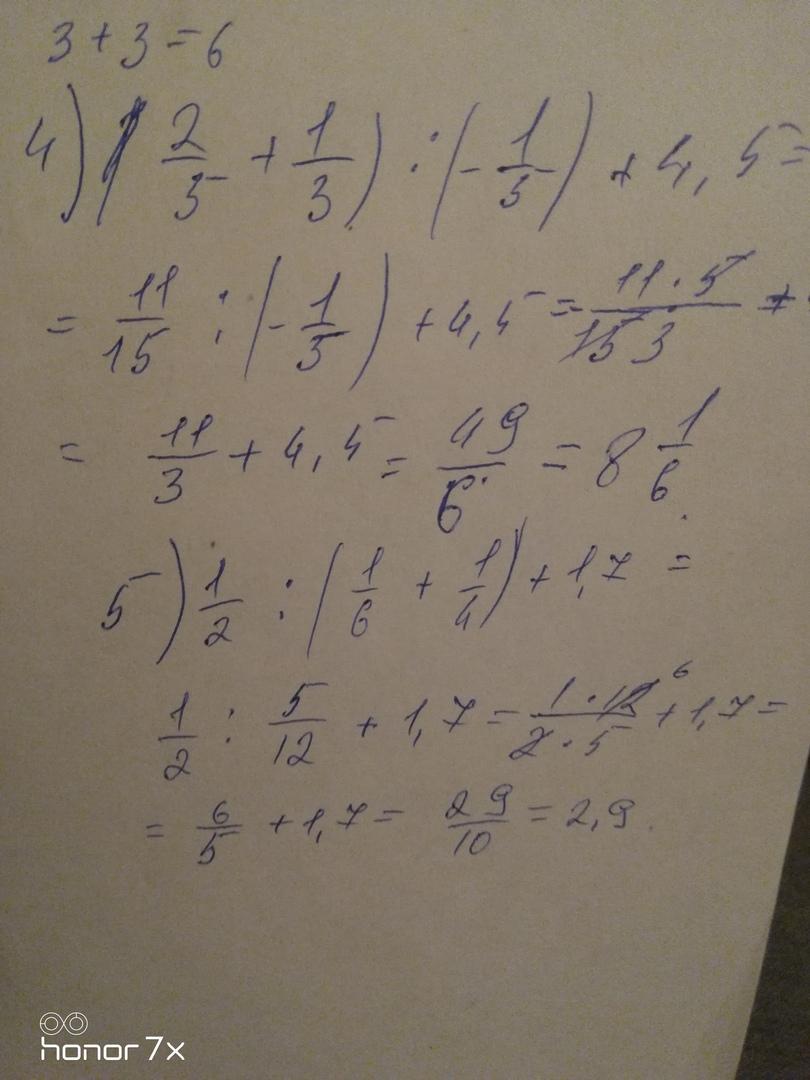 3 + 3 = 6
4) ( 2/5 + 1/3 ) : ( - 1/5 ) + 4,5 =
= 11/15 : ( - 1/5 ) + 4,5 = 11 · 5 / 15 3 +
= 11/3 + 4,5 = 49/6 = 8 1/6
5) 1/2 : ( 1/6 + 1/4 ) + 1,7 =
1/2 : 5/12 + 1,7 = 1 · 12 6 / 2 · 5 + 1,7 =
= 6/5 + 1,7 = 29/10 = 2,9
honor 7x